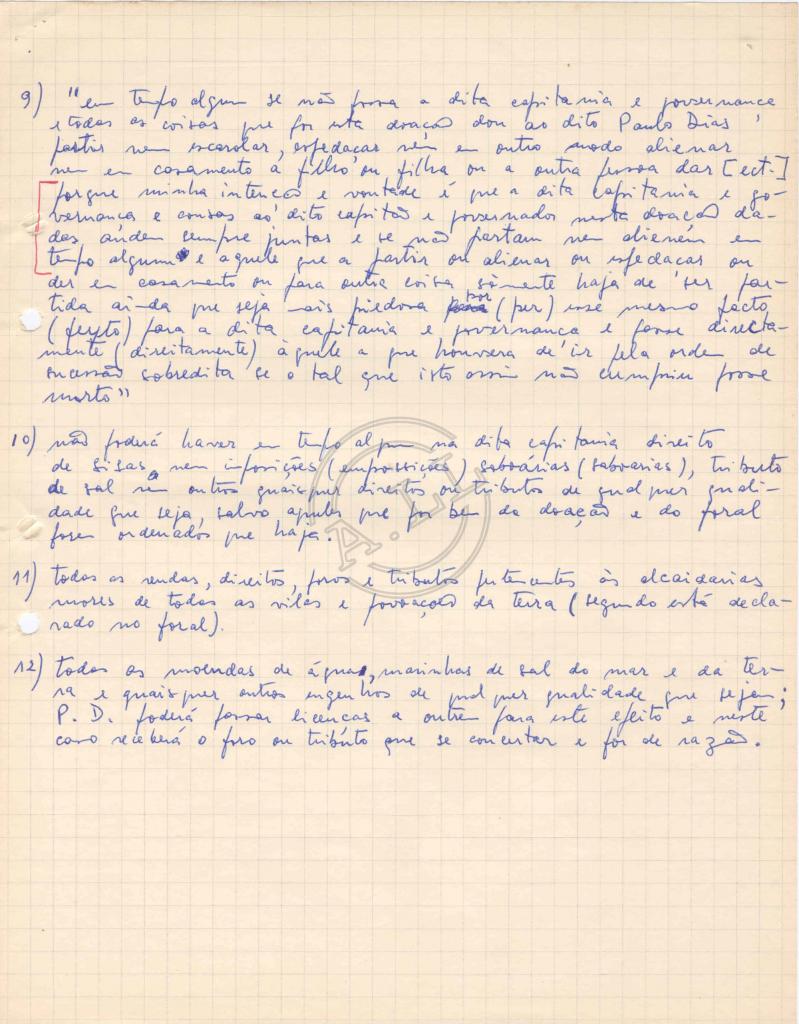 9) "em tempo algum se não possa a dita capitania e governança
e todas as coisas que por esta doação dou ao dito Paulo Dias,
partir nem escarolar, espedaçar nem em outro modo alienar
nem em casamento a filho ou filha ou a outra pessoa dar [ect.]
porque minha intenção e vontade é que a dita capitania e go-
vernança e cousas ao dito capitão e governador nesta doação da-
das andem sempre juntas e se não partam nem alienem em
tempo algum e aquele que a partir ou alienar ou espedaçar ou
der em casamento ou para outra coisa sòmente haja de ser par-
tida ainda que seja mais piedosa por (per) esse mesmo facto
(feyto) para a dita capitania e governança e passe directa-
mente (direitamente) àquele a que houvera de ir pela ordem de
sucessão sobredita se o tal que isto assim não cumpriu fosse
morto"
10) não poderá haver em tempo algum na dita capitania direito
de sisas, nem imposições (empossições) saboárias (saboarias), tributo
de sal nem outros quaisquer direitos ou tributos de qualquer quali-
dade que seja, salvo aqueles que por bem da doação e do foral
forem ordenados que haja.
11) todas as rendas, direitos, foros e tributos pertencentes às alcaidarias
mores de todas as vilas e povoações da terra (segundo está decla-
rado no foral).
12) todas as moendas de água, marinhas de sal do mar e da ter-
ra e quaisquer outros engenhos de qualquer qualidade que sejam;
P. D. poderá passar licenças a outrem para este efeito e neste
caso receberá o foro ou tributo que se concertar e for de razão.
A.L.